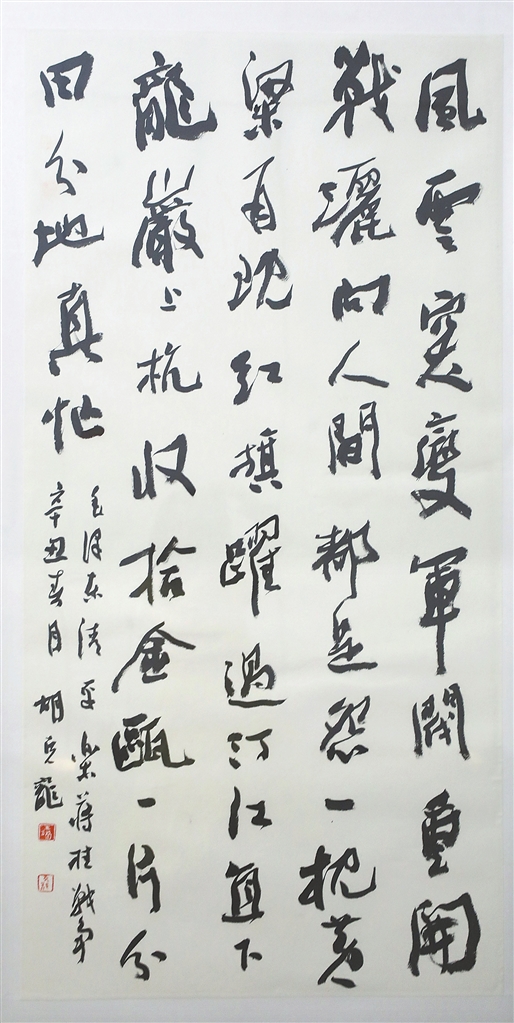 風雲突變軍閥重開
戰灑向人間都是怨一枕黃
粱再現紅旗躍過汀江直下
龍巖上杭收拾金甌一片分
田分地真忙
毛泽东清平樂蔣桂戰争
辛丑春月 胡克龍